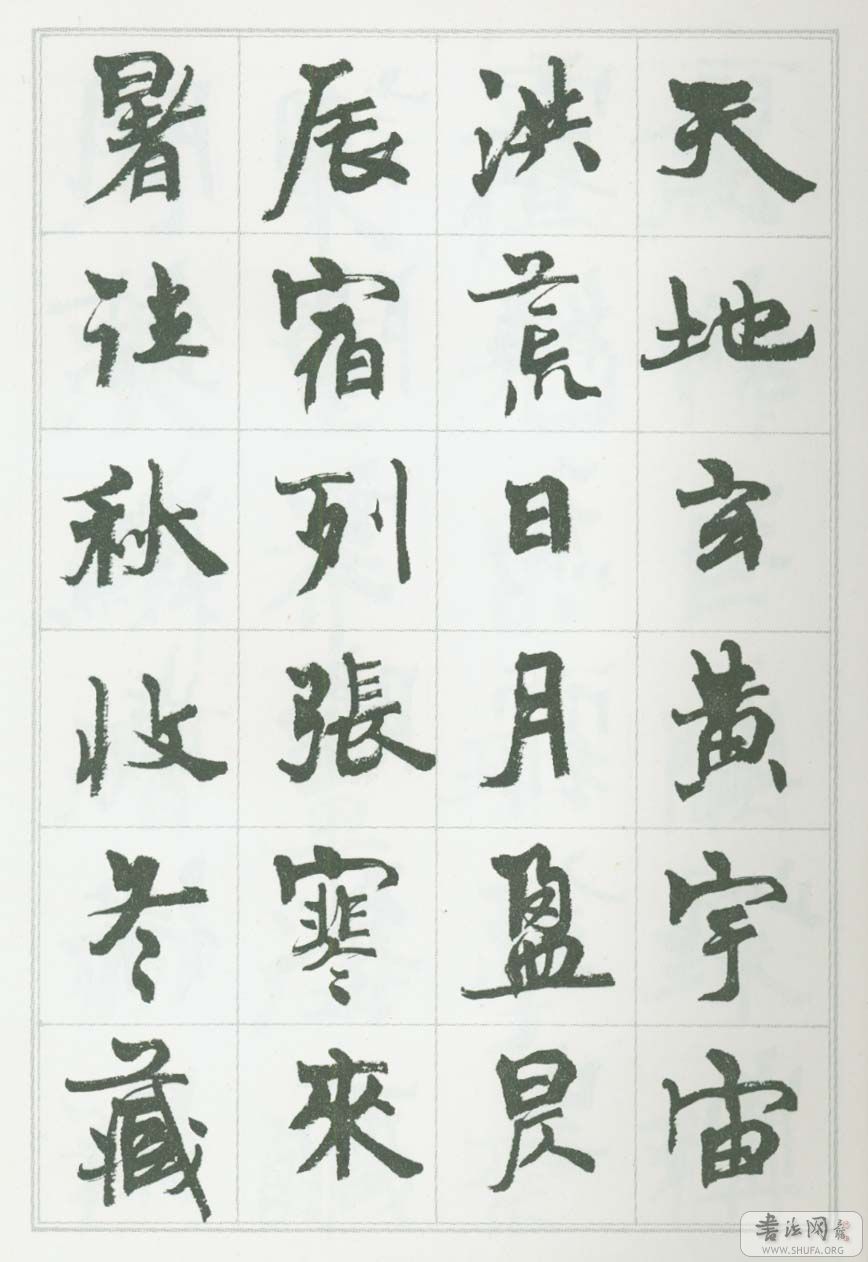 天地玄黄宇宙
洪荒日月盈昃
辰宿列張寒來
暑往秋收冬藏
书法网
WWW.SHUFA.ORG